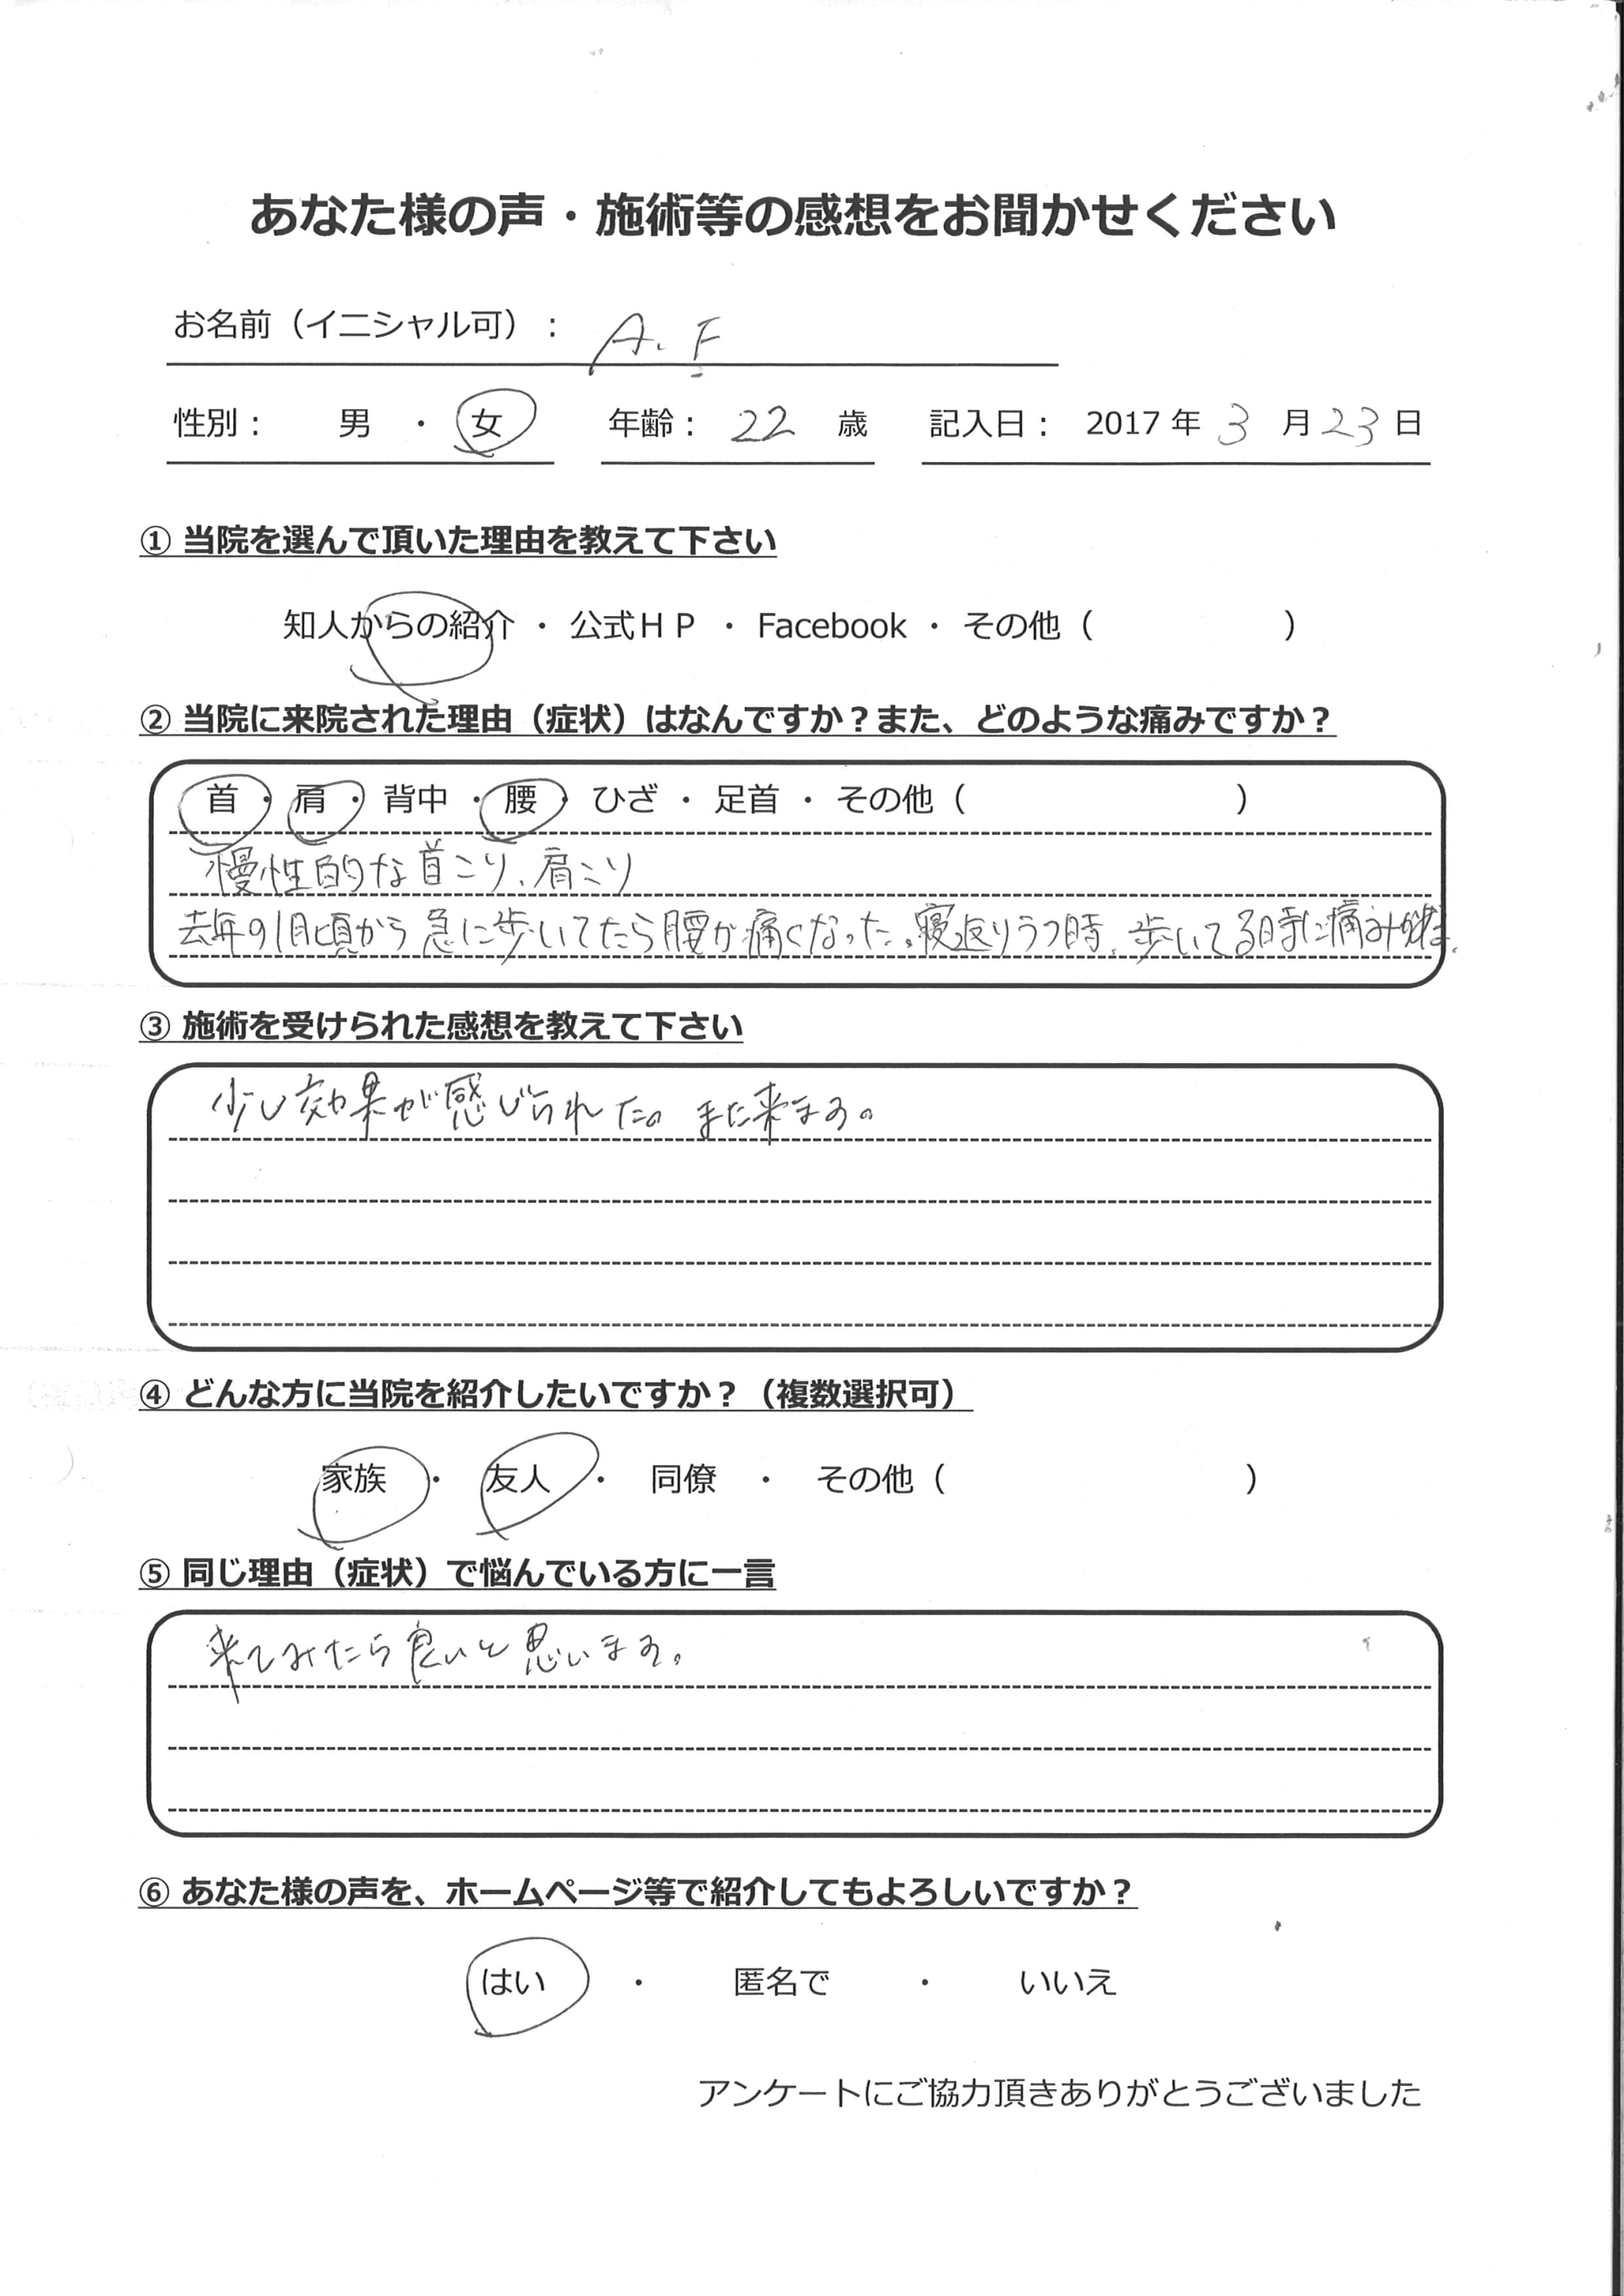 あなた様の声・施術等の感想をお聞かせください
お名前（イニシャル可）： A. F
性別： 男 ・ 女 年齢： 22 歳 記入日： 2017 年 3 月 23 日
① 当院を選んで頂いた理由を教えて下さい
知人からの紹介 ・ 公式ＨＰ ・ Facebook ・ その他（ ）
② 当院に来院された理由（症状）はなんですか？また、どのような痛みですか？
首 ・ 肩 ・ 背中 ・ 腰 ・ ひざ ・ 足首 ・ その他（ ）
慢性的な首こり、肩こり
去年の1月頃から急に歩いてたら腰が痛くなった。寝返りうつ時、歩いてる時に痛みが
③ 施術を受けられた感想を教えて下さい
少し効果が感じられた。また来ます。
④ どんな方に当院を紹介したいですか？（複数選択可）
家族 ・ 友人 ・ 同僚 ・ その他（ ）
⑤ 同じ理由（症状）で悩んでいる方に一言
来てみたら良いと思います。
⑥ あなた様の声を、ホームページ等で紹介してもよろしいですか？
はい ・ 匿名で ・ いいえ
アンケートにご協力頂きありがとうございました